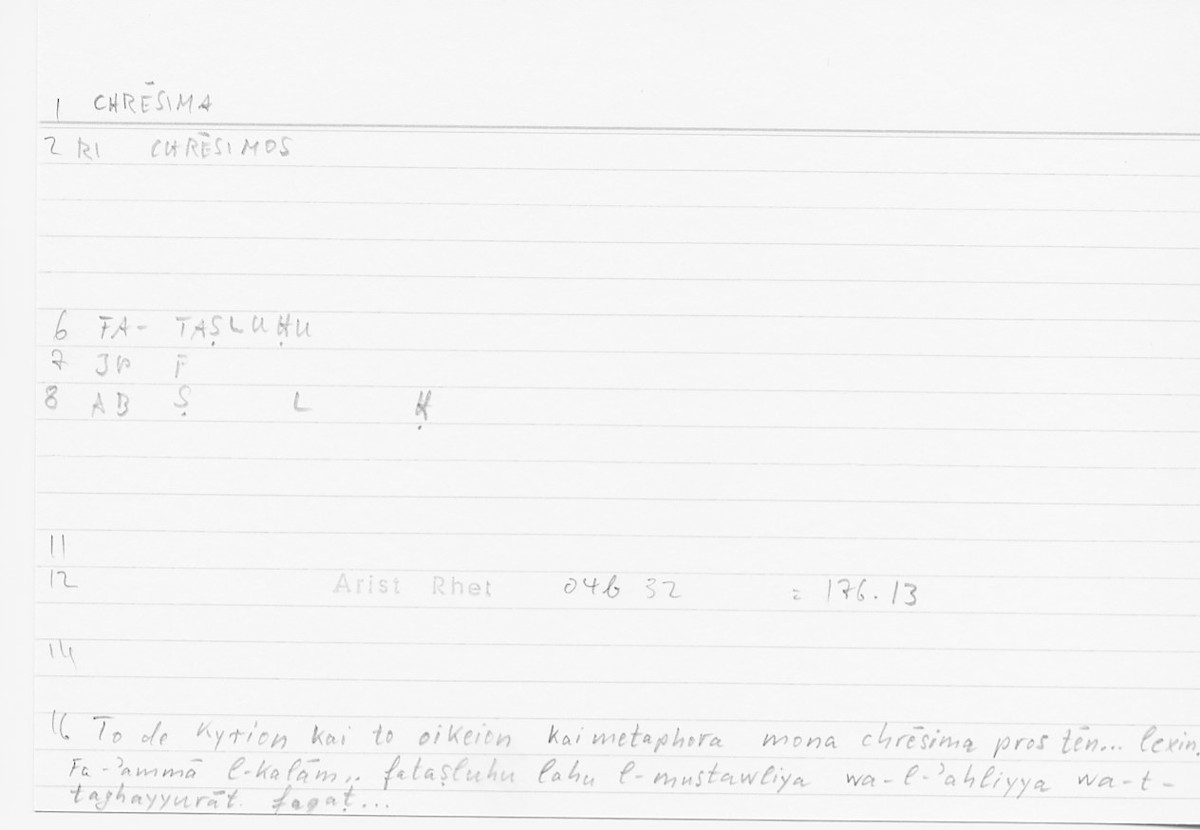 1 CHRĒSIMA
2 RI CHRĒSIMOS
6 FA- TAṢLUḤU
7 3V F
8 AB Ṣ L Ḥ
11
12 Arist Rhet 04b 32 = 176.13
14
16 To de kyrion kai to oikeion kai metaphora mona chrēsima pros tēn... lexin.
Fa-'ammā l-kalām.. fataṣluhu lahu l-mustawliya wa-l-'ahliyya wa-t-
taghayyurāt. faqaṭ...